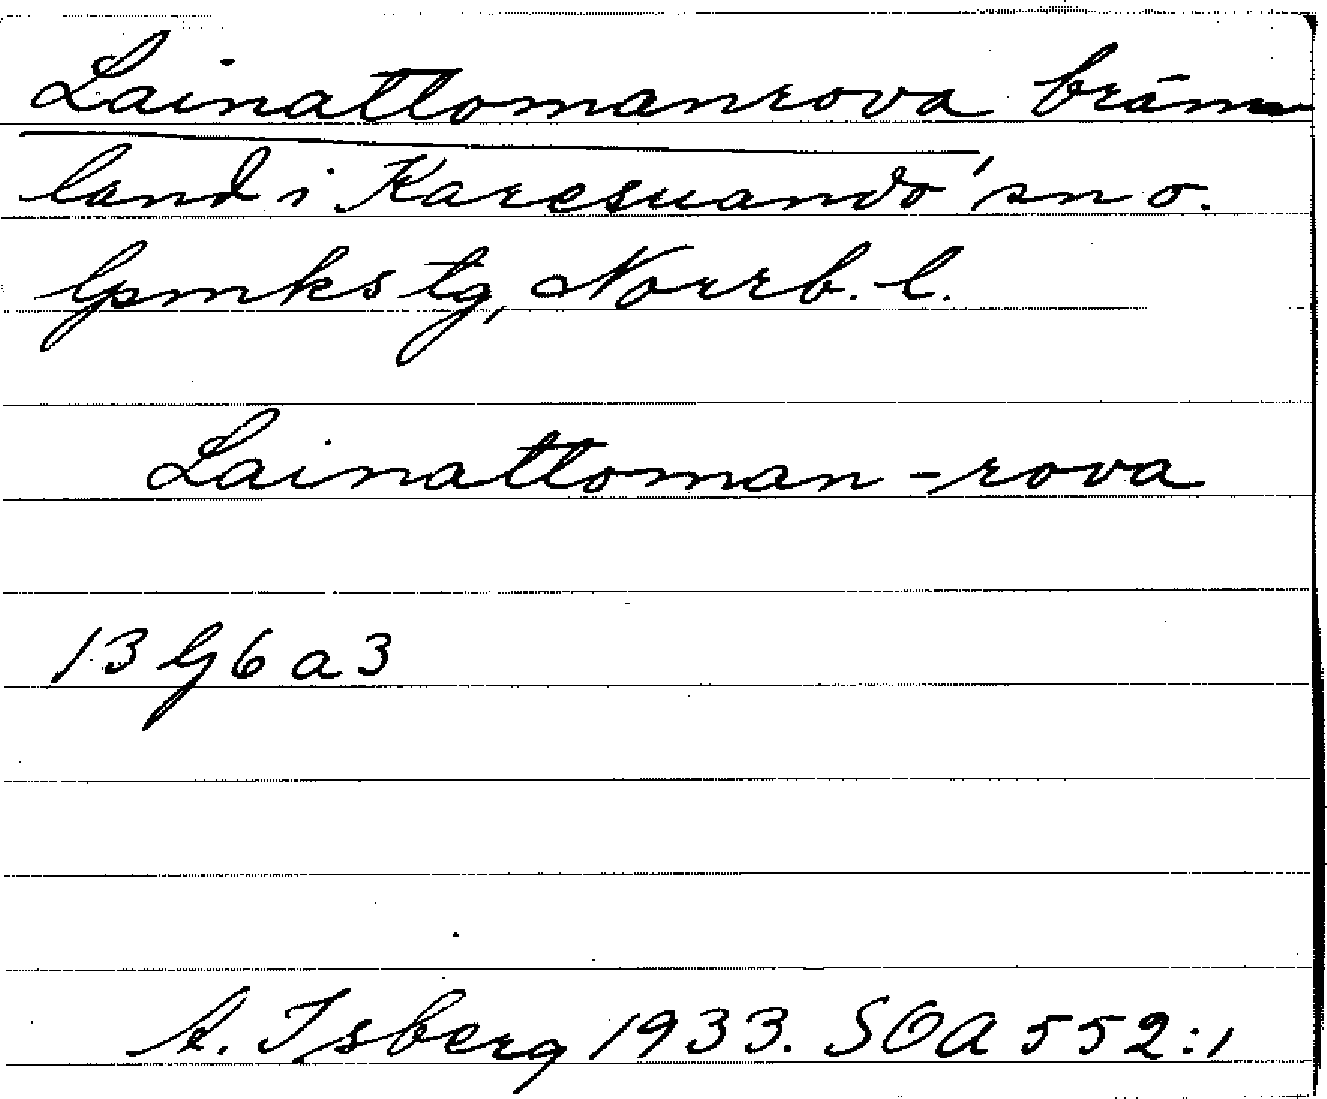 Lainattomanrova bränn
land i Karesuando sn o.
lpmkstg, Norrb. l.
Lainattoman-rova
13 G 6 a 3
A. Isberg 1933. SOA 552:1